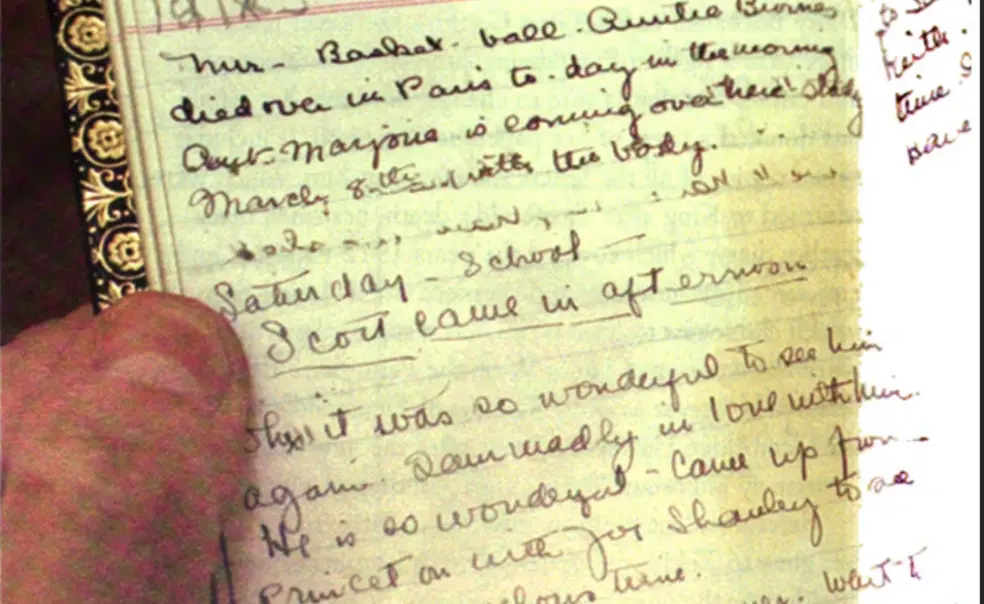 Mrs - Basket - ball - Auntie Byrnes
died over in Paris to-day in the morning
Aunt Marjorie is coming over here
March 8th with the body.
Saturday - School
Scott came in afternoon
it was so wonderful to see him
again. I am madly in love with him.
He is so wonderful - Came up from
Princeton with Joe Shanley to see
time.
want t
to s
time
have